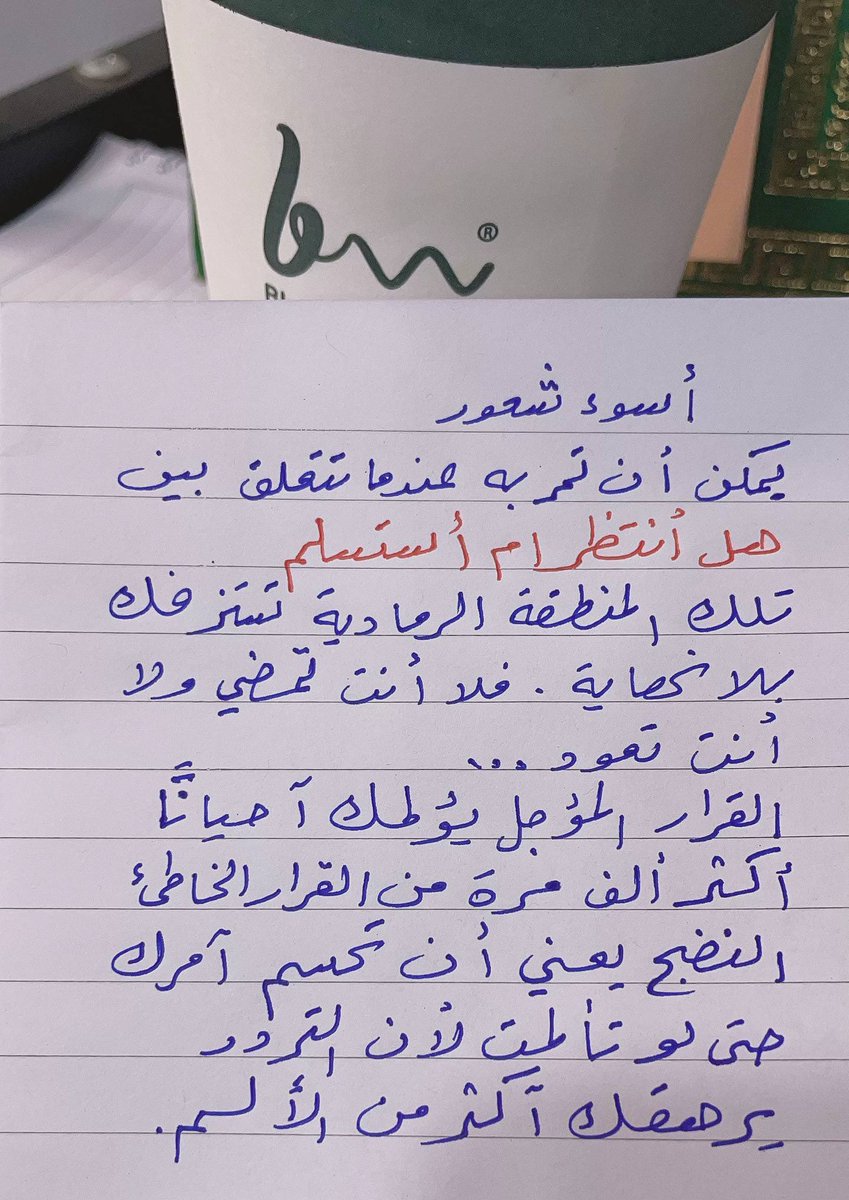 bw®
أسوء شعور
يمكن أن تمر به عندما تتعلق بين
هل أنتظر ام أستسلم
تلك المنطقة الرمادية تستنزفك
بلا نهاية . فلا أنت تمضي ولا
أنت تعود ...
القرار المؤجل يؤلمك آحيانًا
أكثر ألف مرة من القرار الخاطئ
النضج يعني أن تحسم آمرك
حتى لو تألمت لأن التردد
يرهقك آكثر من الألم.